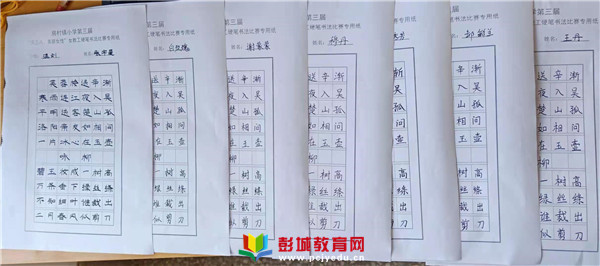 小学第三届
工硬笔书法比赛专用纸
芙蓉楼送辛渐
寒雨连江夜入吴
平明送客楚山孤
洛阳亲友如相问
一片冰心在玉壶
咏柳
碧玉妆成一树高
万条垂下绿丝绦
不知细叶谁裁出
二月春风似剪刀
第三届
工硬笔书法比赛专用纸
送辛渐
夜入吴
楚山孤
如相问
在玉壶
柳
一树高
绿丝绦
谁裁出
似剪刀
第三届
工硬笔书法比赛专用纸
姓名:
送辛渐
夜入吴
楚山孤
如相问
在玉壶
柳
一树高
绿丝绦
谁裁出
似剪刀
第三届
工硬笔书法比赛专用纸
姓名: 穆丹
送辛渐
夜入吴
楚山孤
如相问
在玉壶
柳
一树高
绿丝绦
谁裁出
似剪刀
三届
比赛专用纸
渐
吴
孤
问
壶
高
绦
出
刀
第三届
工硬笔书法比赛专用纸
送辛渐
夜入吴
楚山孤
如相问
在玉壶
柳
一树高
绿丝绦
谁裁出
似剪刀
第三届
工硬笔书法比赛专用纸
姓名: 王丹
送辛渐
夜入吴
楚山孤
如相问
在玉壶
柳
一树高
绿丝绦
谁裁出
似剪刀
彭城教育网
www.pcjyedu.cn